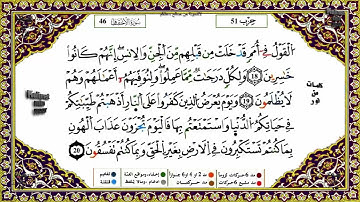 حِزْب 51
سُورَةُ الأَحْقَاف 46
الْقَوْلُ فِي أُمَمٍ قَدْ خَلَتْ مِن قَبْلِهِم مِّنَ الْجِنِّ وَالْإِنسِ إِنَّهُمْ كَانُوا
خَاسِرِينَ 18 وَلِكُلٍّ دَرَجَاتٌ مِّمَّا عَمِلُوا وَلِنُوَفِّيَهُمْ أَعْمَالَهُمْ وَهُمْ
لَا يُظْلَمُونَ 19 وَيَوْمَ يُعْرَضُ الَّذِينَ كَفَرُوا عَلَى النَّارِ أَذْهَبْتُمْ طَيِّبَاتِكُمْ
فِي حَيَاتِكُمُ الدُّنْيَا وَاسْتَمْتَعْتُم بِهَا فَالْيَوْمَ تُجْزَوْنَ عَذَابَ الْهُونِ
بِمَا كُنتُمْ تَسْتَكْبِرُونَ فِي الْأَرْضِ بِغَيْرِ الْحَقِّ وَبِمَا كُنتُمْ تَفْسُقُونَ 20
مد 6 حركات لزوما
مد 2 أو 4 أو 6 جوازا